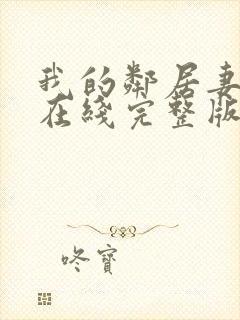 我的鄰居妻
在綫完整版
咚寶